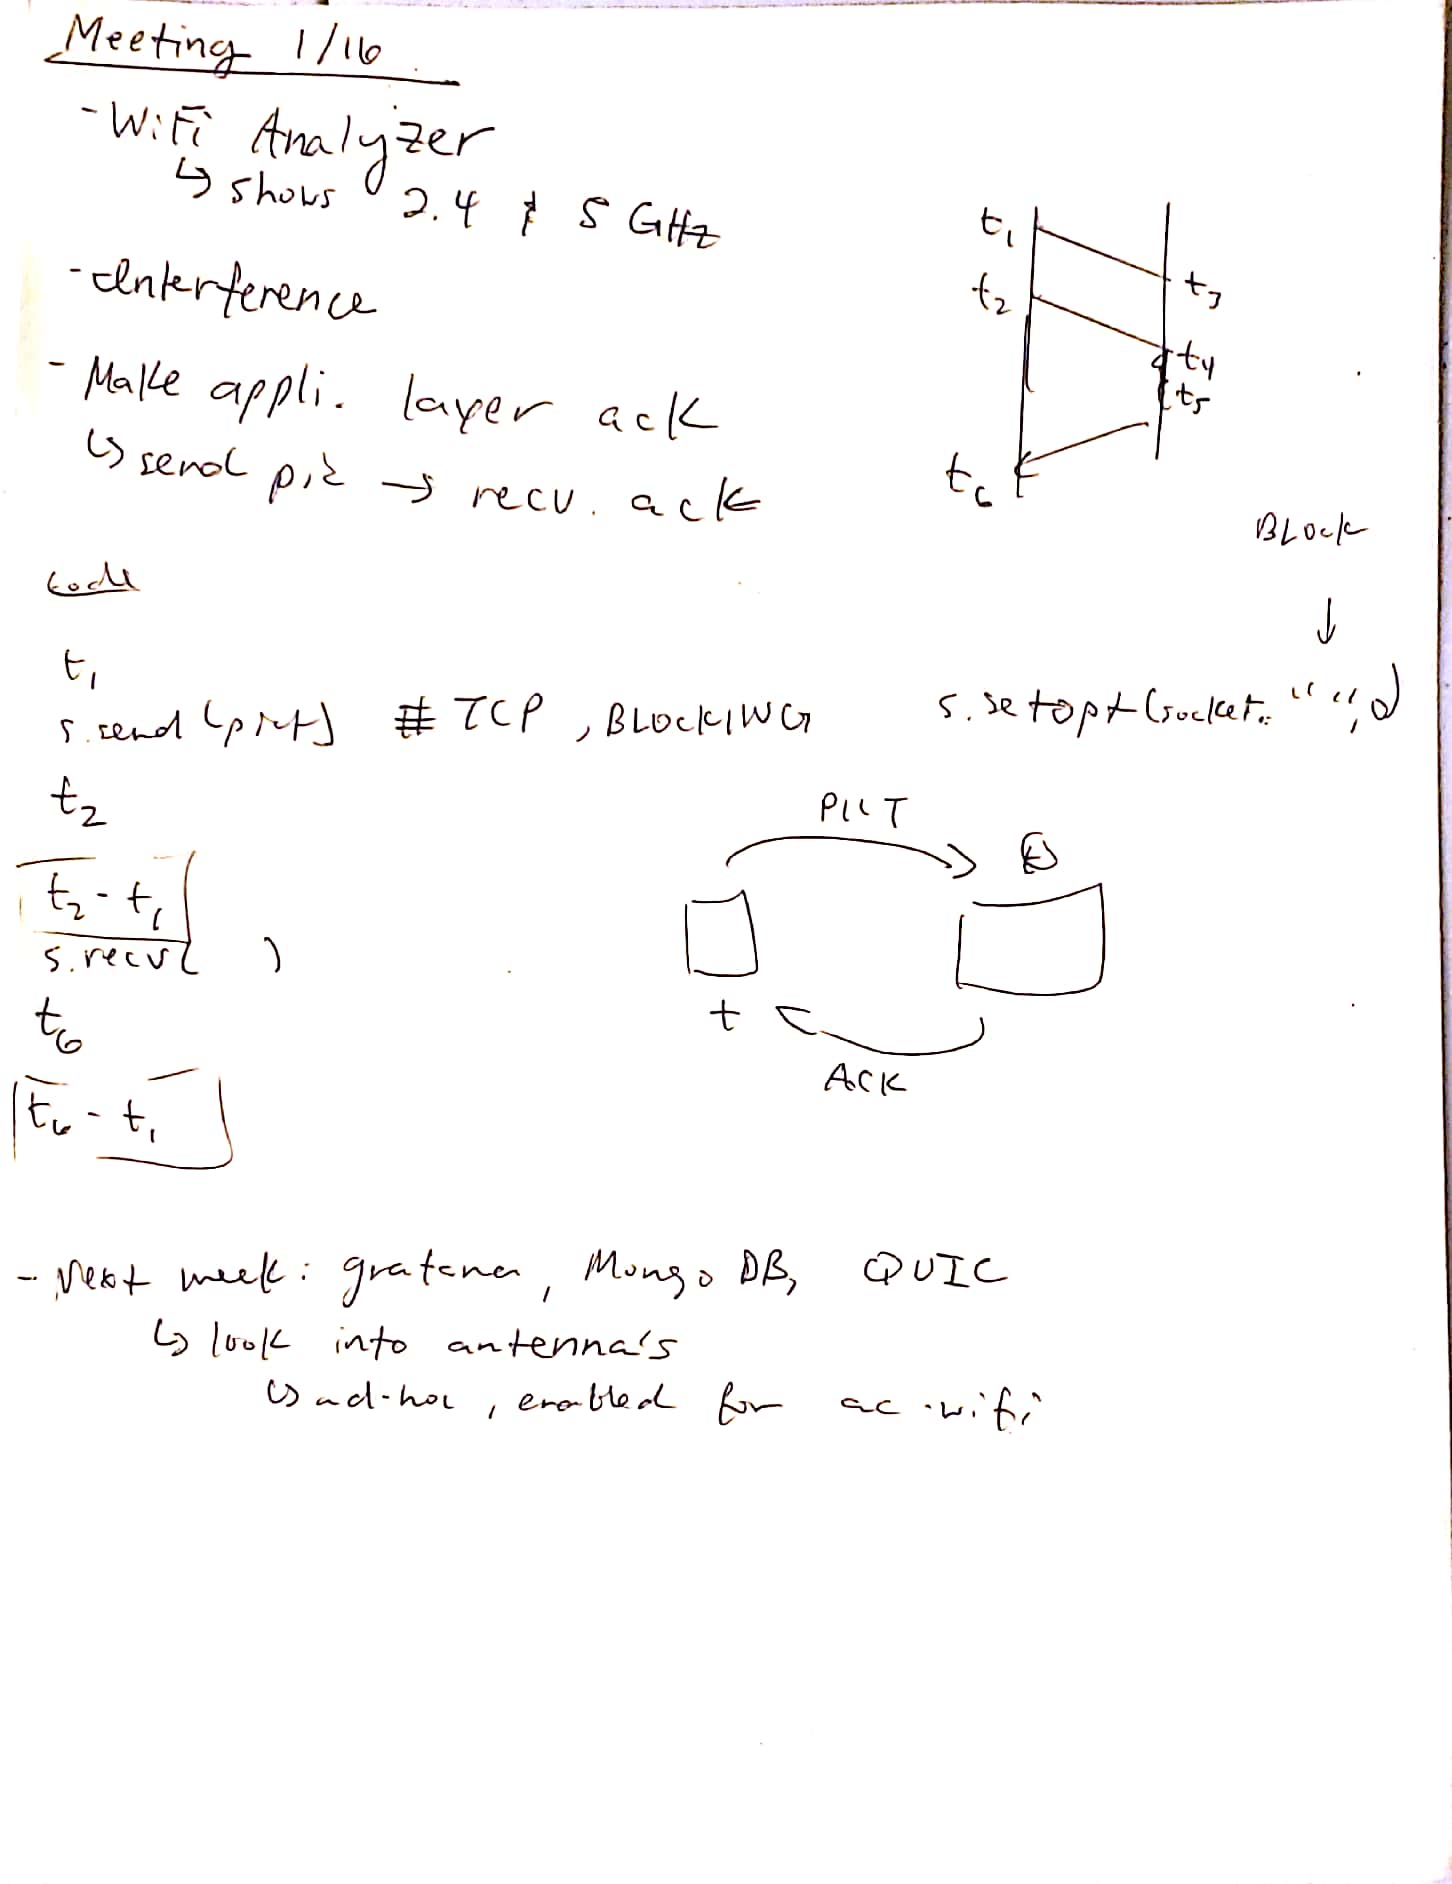 Meeting 1/16
- WiFi Analyzer
↳ shows 2.4 & 5 GHz
- Interference
- Make appli. layer ack
↳ send pic → recv. ack
t₁
t₂
t₃
t₄
t₅
t₆
BLock
↓
code
t₁
s.send (pict) # TCP, BLOCKING
s.setopt(socket. " ",
t₂
t₂ - t₁
s.recv( )
t₆
t₆ - t₁
PICT
t
t
ACK
- Next week: grafana, Mongo DB, QUIC
↳ look into antenna's
↳ ad-hoc, enabled for ac wifi